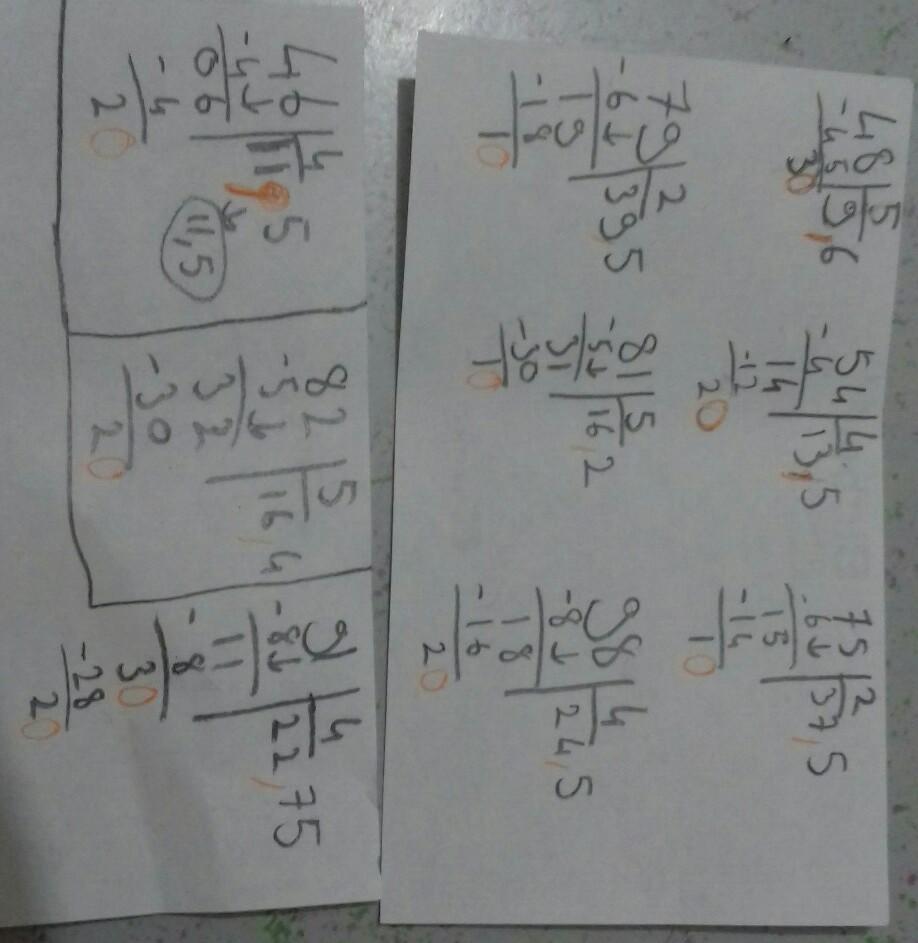 48 5
-45 9,6
30
54 4
-4 13,5
14
-12
20
75 2
-6↓ 37,5
15
-14
10
79 2
-6↓ 39,5
19
-18
10
81 5
-5↓ 16,2
31
-30
10
98 4
-8↓ 24,5
18
-16
20
46 4
-4↓ 11,5
06 11,5
-4
20
82 5
-5↓ 16,4
32
-30
20
91 4
-8↓ 22,75
11
-8
30
-28
20